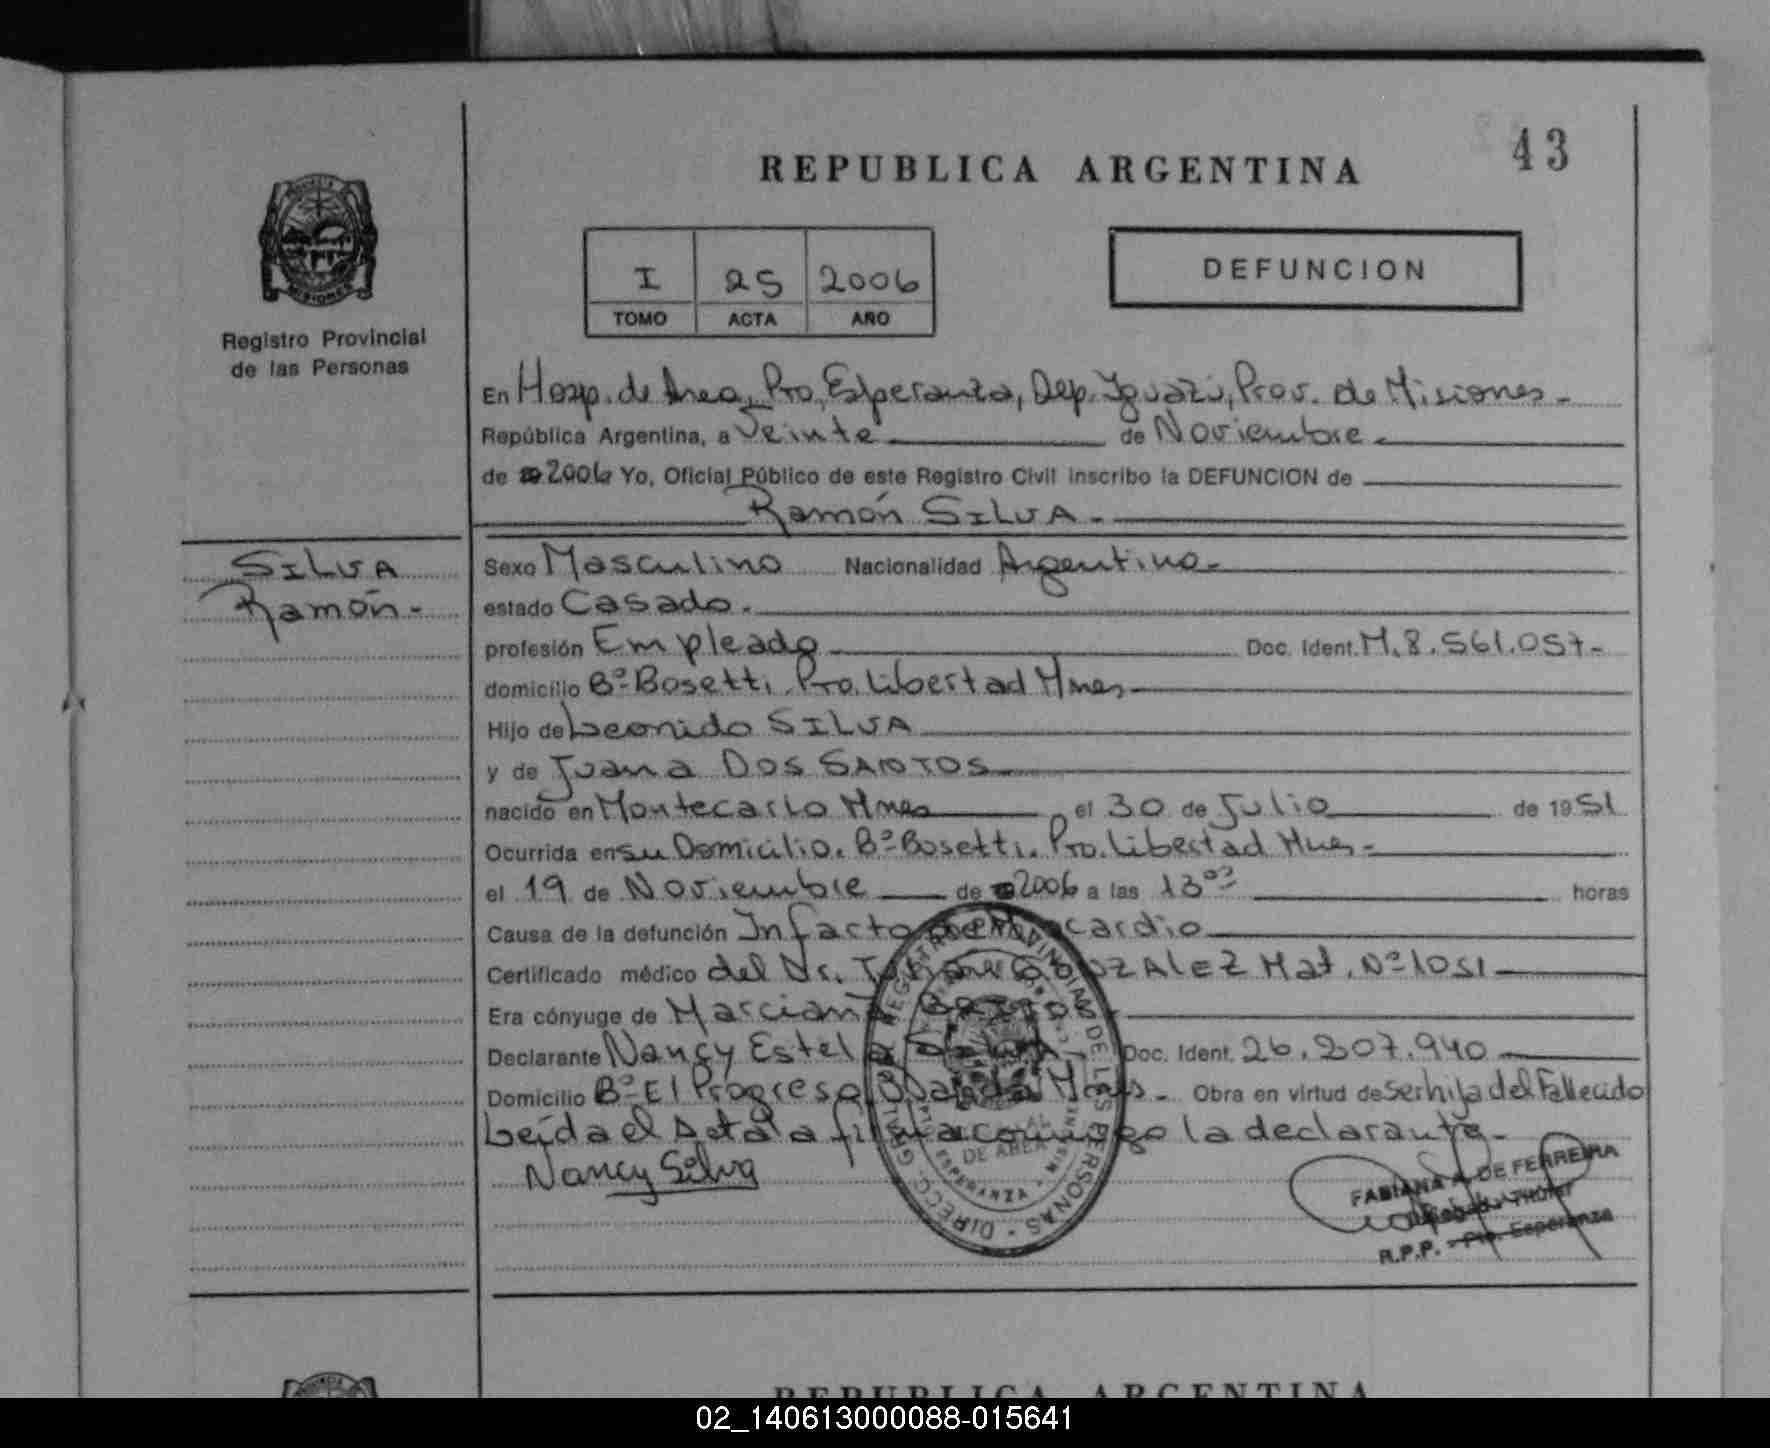 43
REPUBLICA ARGENTINA
I 25 2006
TOMO ACTA AÑO
DEFUNCION
MISIONES
Registro Provincial
de las Personas
En Hosp. de Area, Pto. Esperanza, Dep. Iguazú, Prov. de Misiones.
República Argentina, a Veinte de Noviembre.
de 2006 Yo, Oficial Público de este Registro Civil inscribo la DEFUNCION de
Ramón SILVA.
SILVA
Ramón.
Sexo Masculino Nacionalidad Argentina.
estado Casado.
profesión Empleado Doc. Ident. M. 8.561.057.
domicilio Bº Bosetti. Pto. Libertad Mnes
Hijo de Leonido SILVA
y de Juana DOS SANTOS
nacido en Montecarlo Mnes el 30 de Julio de 1951
Ocurrida en su Domicilio. Bº Bosetti. Pto. Libertad Mnes.
el 19 de Noviembre de 2006 a las 13 horas
Causa de la defunción Infarto de Miocardio
Certificado médico del Dr. GONZALEZ Mat. Nº 1051
Era cónyuge de Marciana
Declarante Nancy Estela SILVA. Doc. Ident. 26.207.940
Domicilio Bº El Progreso Wanda Mnes. Obra en virtud de ser hija del Fallecido
Leída el Acta la firma conmigo la declarante.
Nancy Silva
DIRECC. GRAL. REGISTRO PROVINCIAL DE LAS PERSONAS
DE AREA
ESPERANZA - MISIONES
FABIANA A. DE FERREIRA
Delegada Titular
R.P.P. - Pto. Esperanza
REPUBLICA ARGENTINA
02_140613000088-015641